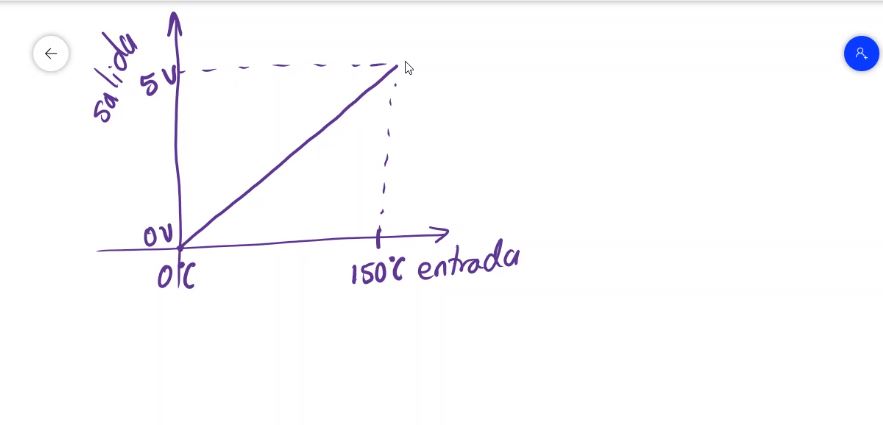 salida
5V
0V
0°C
150°C entrada